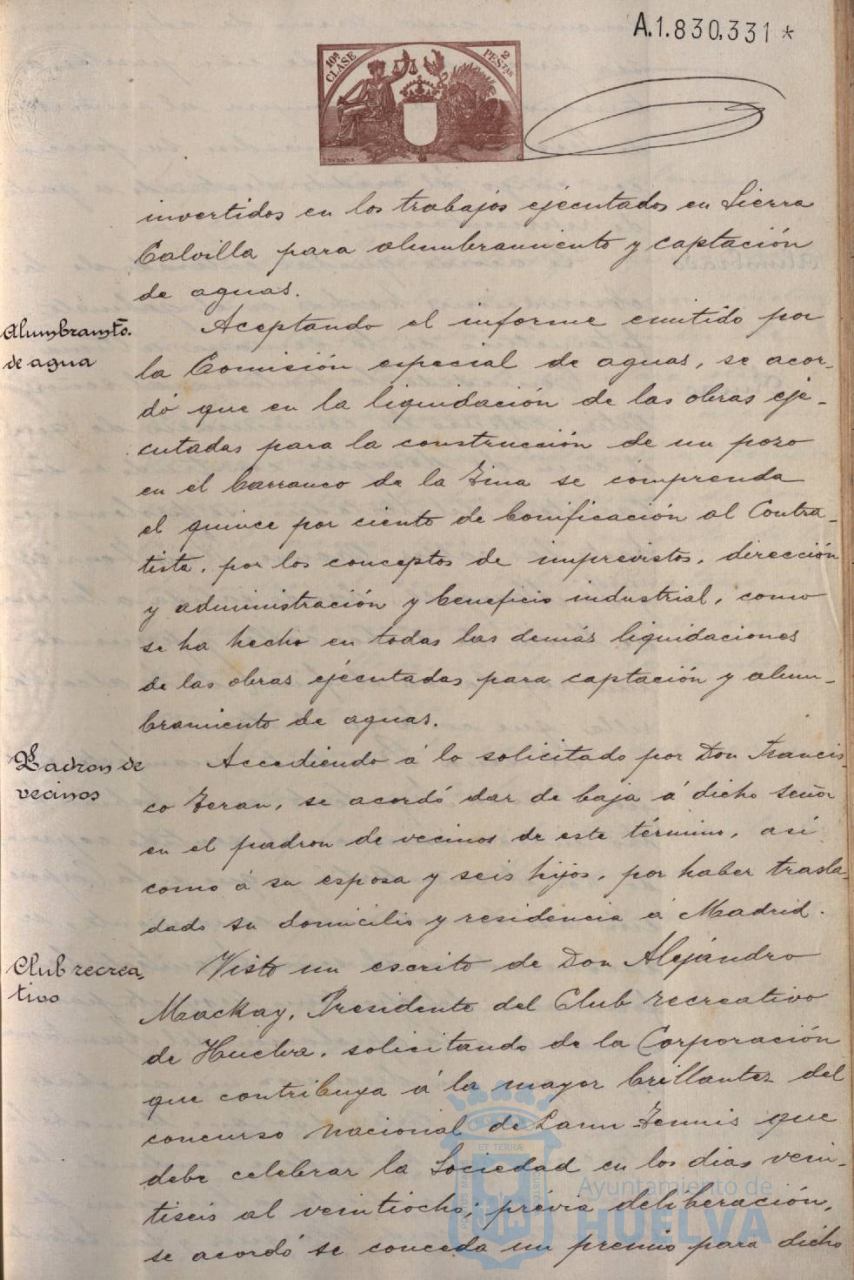 A.1.830,331 *
10ª CLASE
2 PESTAS
invertidos en los trabajos ejecutados en Sierra
Calvilla para alumbramiento y captación
de aguas.
Alumbramto.
de agua
Aceptando el informe emitido por
la Comisión especial de aguas, se acor-
dó que en la liquidación de las obras eje-
cutadas para la construcción de un pozo
en el barranco de la se comprenda
el quince por ciento de bonificación al Contra-
tista, por los conceptos de imprevistos, dirección
y administración y beneficio industrial, como
se ha hecho en todas las demás liquidaciones
de las obras ejecutadas para captación y alum-
bramiento de aguas.
Padron de
vecinos
Accediendo á lo solicitado por Don Francis-
co Teran, se acordó dar de baja á dicho señor
en el padron de vecinos de este término, así
como á su esposa y seis hijos, por haber trasla-
dado su domicilio y residencia á Madrid.
Club recrea-
tivo
Visto un escrito de Don Alejandro
Mackay, Presidente del Club recreativo
de Huelva, solicitando de la Corporación
que contribuya á la mayor brillantez del
concurso nacional de Lawn-Tennis que
debe celebrar la Sociedad en los dias vein-
tiseis al veintiocho; prévia deliberación,
se acordó se conceda un premio para dicho
Ayuntamiento de
HUELVA